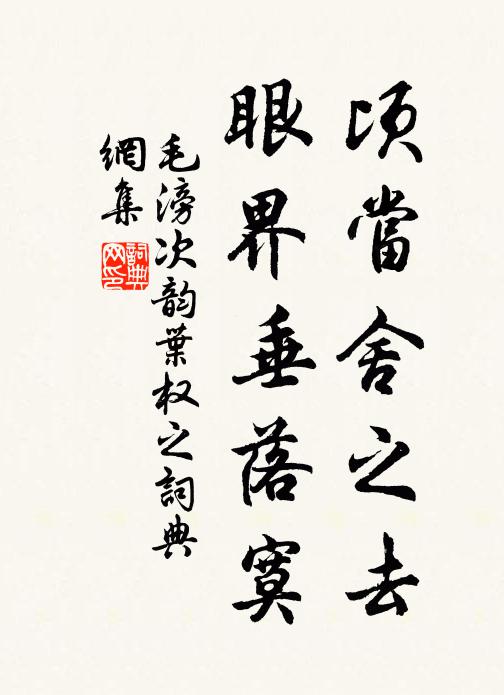 頃當舍之去
眼界垂落寞
毛滂次韵葉权之詞典
網集
詞典网印